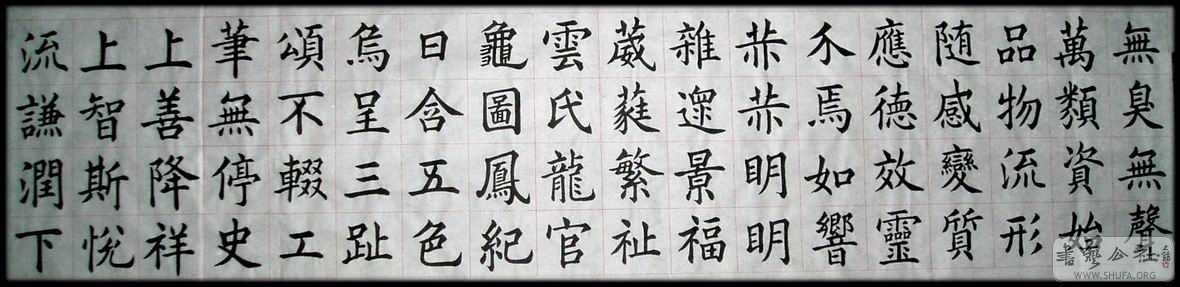 無臭無聲
萬類資始
品物流形
随感變質
應徳效靈
介焉如響
赫赫明明
雜遝景福
葳蕤繁祉
雲氏龍官
龜圖鳳紀
日含五色
烏呈三趾
頌不輟工
筆無停史
上善降祥
上智斯悅
流謙潤下
書藝公社
WWW.SHUFA.ORG